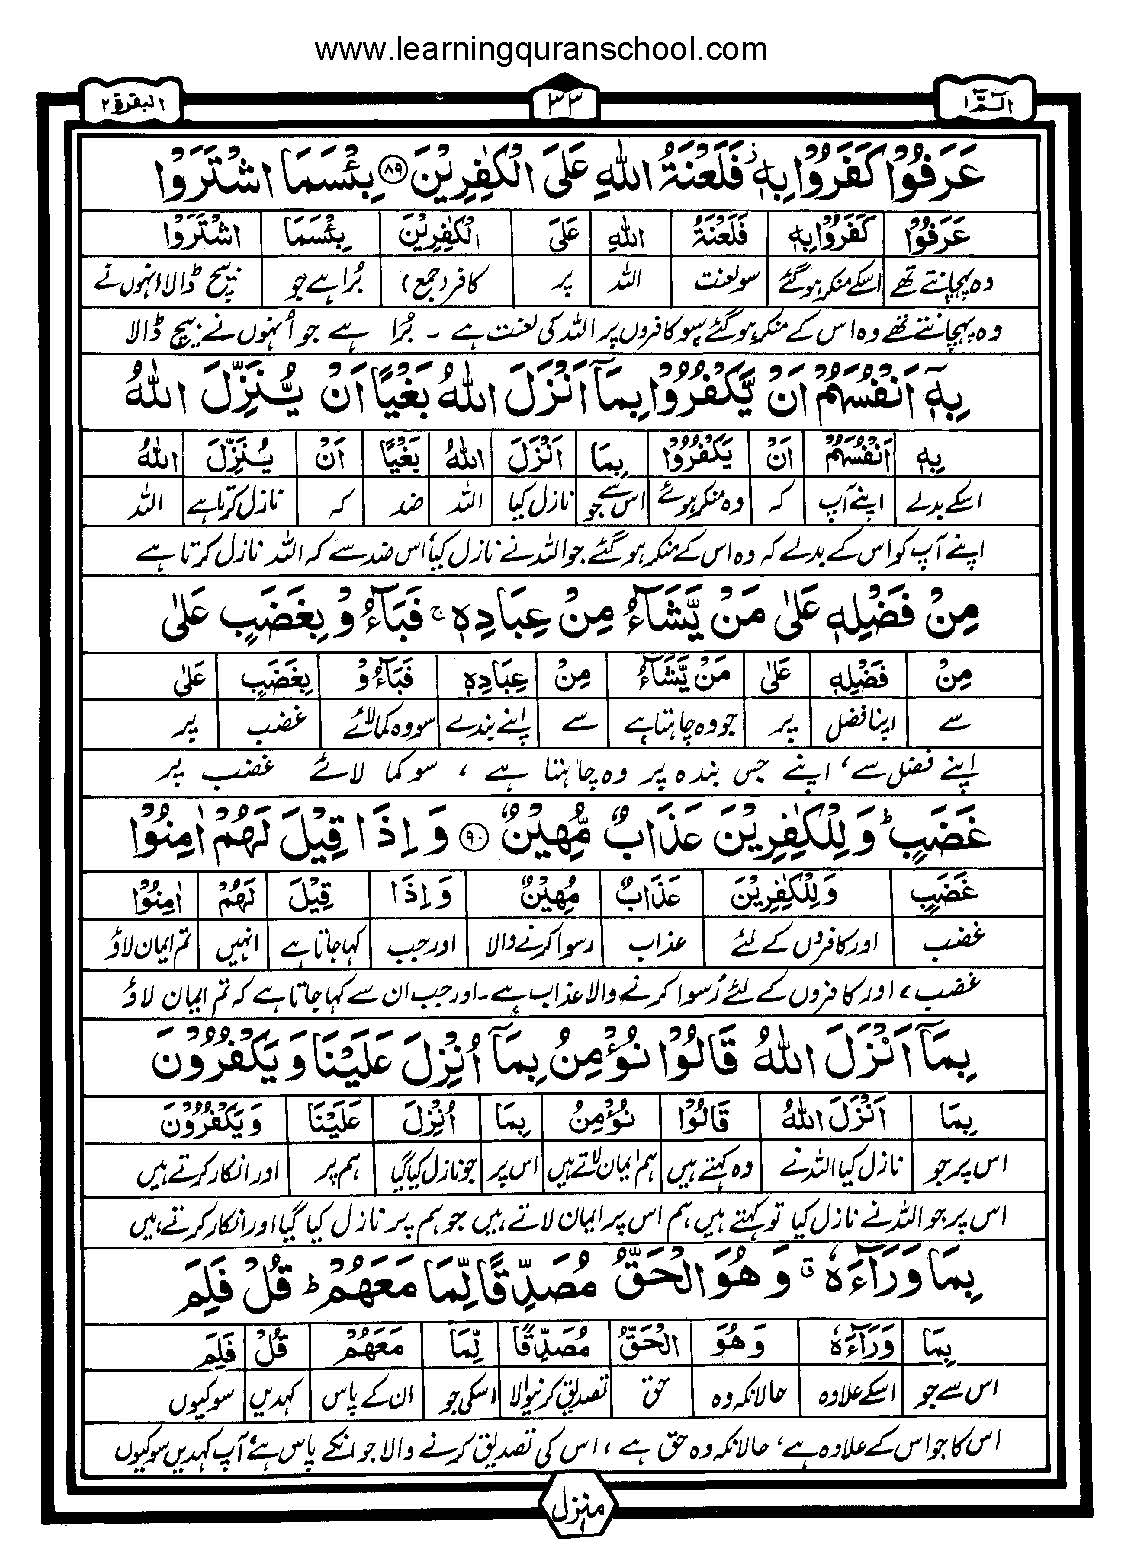 www.learningquranschool.com
الٓمّٓ ١ ٣٣ البقرة ٢
عَرَفُوْا كَفَرُوْا بِهٖ ۡ فَلَعْنَةُ اللّٰهِ عَلَى الْكٰفِرِيْنَ ﴿٨٩﴾ بِئْسَمَا اشْتَرَوْا
عَرَفُوْا كَفَرُوْا بِهٖ فَلَعْنَةُ اللّٰهِ عَلَى الْكٰفِرِيْنَ بِئْسَمَا اشْتَرَوْا
وہ پہچانتے تھے اسکے منکر ہوگئے سو لعنت اللہ پر کافر (جمع) بُرا ہے جو بیچ ڈالا انہوں نے
وہ پہچانتے تھے وہ اس کے منکر ہو گئے سو کافروں پر اللہ کی لعنت ہے ۔ بُرا ہے جو اُنہوں نے بیچ ڈالا
بِهٖٓ اَنْفُسَهُمْ اَنْ يَّكْفُرُوْا بِمَآ اَنْزَلَ اللّٰهُ بَغْيًا اَنْ يُّنَزِّلَ اللّٰهُ
بِهٖ اَنْفُسَهُمْ اَنْ يَكْفُرُوْا بِمَا اَنْزَلَ اللّٰهُ بَغْيًا اَنْ يُنَزِّلَ اللّٰهُ
اسکے بدلے اپنے آپ کہ وہ منکر ہوئے اس سے جو نازل کیا اللہ ضد کہ نازل کرتا ہے اللہ
اپنے آپ کو اس کے بدلے کہ وہ اس کے منکر ہو گئے جو اللہ نے نازل کیا، اس ضد سے کہ اللہ نازل کرتا ہے
مِنْ فَضْلِهٖ عَلٰى مَنْ يَّشَآءُ مِنْ عِبَادِهٖ ۚ فَبَآءُوْ بِغَضَبٍ عَلٰى
مِنْ فَضْلِهٖ عَلٰى مَنْ يَّشَآءُ مِنْ عِبَادِهٖ فَبَآءُوْ بِغَضَبٍ عَلٰى
سے اپنا فضل پر جو وہ چاہتا ہے سے اپنے بندے سو وہ کما لائے غضب پر
اپنے فضل سے، اپنے جس بندہ پر وہ چاہتا ہے ، سو کما لائے غضب پر
غَضَبٍ ؕ وَلِلْكٰفِرِيْنَ عَذَابٌ مُّهِيْنٌ ﴿٩٠﴾ وَاِذَا قِيْلَ لَهُمْ اٰمِنُوْا
غَضَبٍ وَلِلْكٰفِرِيْنَ عَذَابٌ مُهِيْنٌ وَاِذَا قِيْلَ لَهُمْ اٰمِنُوْا
غضب اور کافروں کے لئے عذاب رسوا کرنے والا اور جب کہا جاتا ہے انہیں تم ایمان لاؤ
غضب، اور کافروں کے لئے رُسوا کرنے والا عذاب ہے۔ اور جب ان سے کہا جاتا ہے کہ تم ایمان لاؤ
بِمَآ اَنْزَلَ اللّٰهُ قَالُوْا نُؤْمِنُ بِمَآ اُنْزِلَ عَلَيْنَا وَيَكْفُرُوْنَ
بِمَا اَنْزَلَ اللّٰهُ قَالُوْا نُؤْمِنُ بِمَا اُنْزِلَ عَلَيْنَا وَيَكْفُرُوْنَ
اس پر جو نازل کیا اللہ نے وہ کہتے ہیں ہم ایمان لاتے ہیں اس پر جو نازل کیا گیا ہم پر اور انکار کرتے ہیں
اس پر جو اللہ نے نازل کیا تو کہتے ہیں ہم اس پر ایمان لاتے ہیں جو ہم پر نازل کیا گیا اور انکار کرتے ہیں
بِمَا وَرَآءَهٗ ۗ وَهُوَ الْحَقُّ مُصَدِّقًا لِّمَا مَعَهُمْ ؕ قُلْ فَلِمَ
بِمَا وَرَآءَهٗ وَهُوَ الْحَقُّ مُصَدِّقًا لِّمَا مَعَهُمْ قُلْ فَلِمَ
اس سے جو اسکے علاوہ حالانکہ وہ حق تصدیق کرنیوالا اسکی جو ان کے پاس کہدیں سو کیوں
اس کا جو اس کے علاوہ ہے، حالانکہ وہ حق ہے ، اس کی تصدیق کرنے والا جو انکے پاس ہے، آپ کہدیں سو کیوں
منزل ١